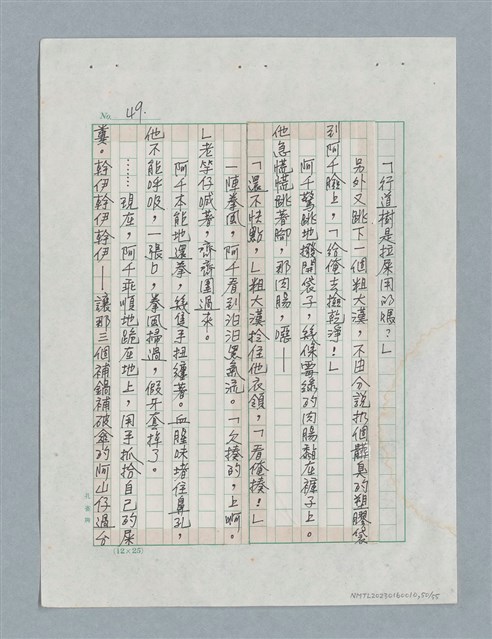 No. 49.
「行道樹是拉屎用的嗎?」
另外又跳下一個粗大漢,不由分說扔個髒臭的塑膠袋
到阿千臉上,「給俺去撿乾淨!」
阿千驚跳地撥開袋子,絲條霉綠的肉腸黏在褲子上。
他急慌慌跳著腳,那肉腸,噁——
「還不快點,」粗大漢拎住他衣領,「看俺揍!」
一陣拳風,阿千看到汩汩黑氣流。「欠揍的,上啊。
」老芋仔喊著,齊齊圍過來。
阿千本能地還拳,幾隻手扭纏著。血腥味堵住鼻孔,
他不能呼吸,一張口,拳風掃過,假牙套掉了。
……現在,阿千乖順地跪在地上,用手抓拾自己的屎
糞。幹伊幹伊幹伊——讓那三個補鍋補破傘的阿山仔過分
(12×25)
NMTL20230160010,50/55